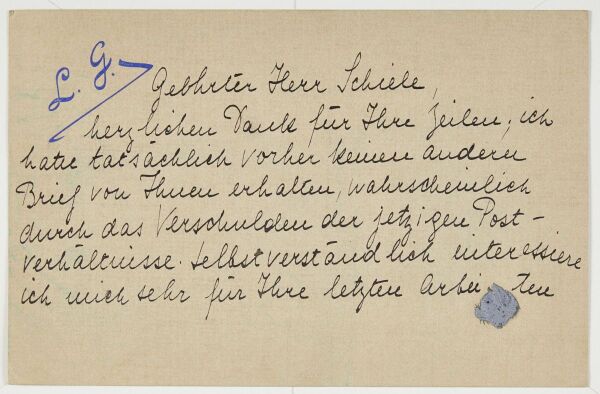 L. G.
Geehrter Herr Schiele,
herzlichen Dank für Ihre Zeilen, ich
hatte tatsächlich vorher keinen anderen
Brief von Ihnen erhalten, wahrscheinlich
durch das Verschulden der jetzigen Post-
verhältnisse. Selbstverständlich interessiere
ich mich sehr für Ihre letzten Arbeiten